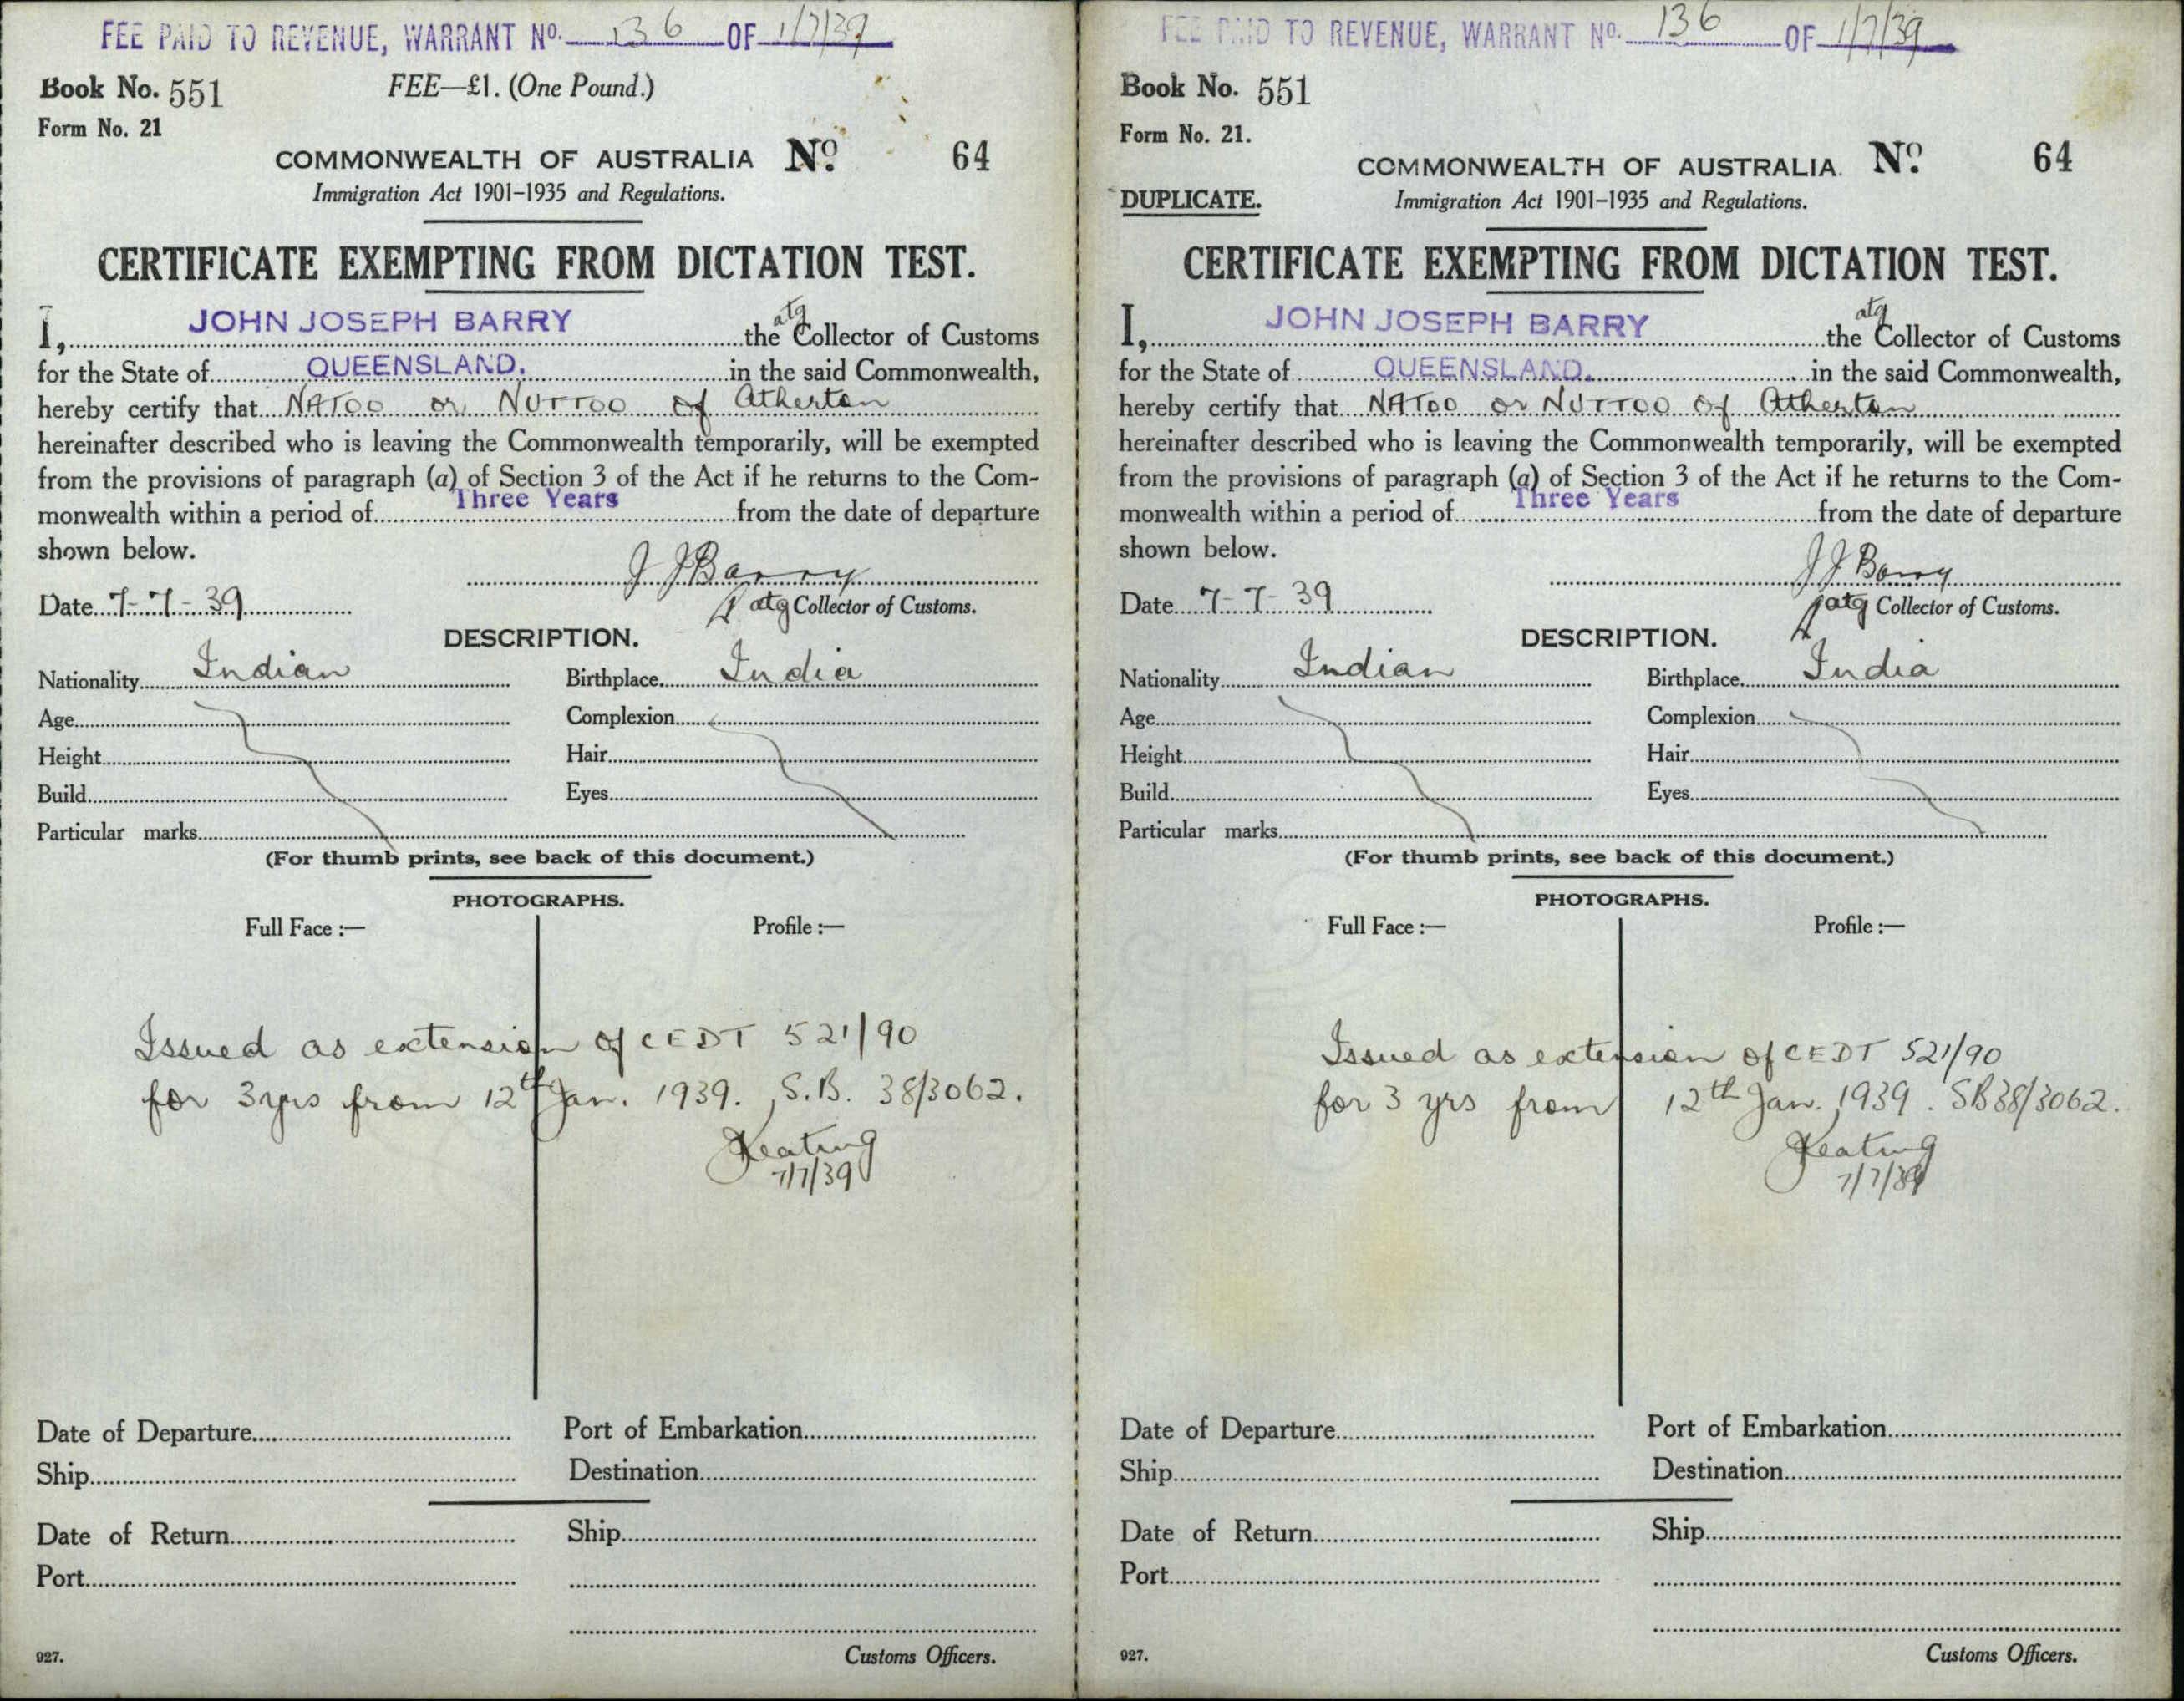 FEE PAID TO REVENUE, WARRANT No. 136 OF 1/7/39
Book No. 551
FEE—£1. (One Pound.)
Form No. 21
COMMONWEALTH OF AUSTRALIA No. 64
Immigration Act 1901–1935 and Regulations.
CERTIFICATE EXEMPTING FROM DICTATION TEST.
I, JOHN JOSEPH BARRY the atg Collector of Customs
for the State of QUEENSLAND. in the said Commonwealth,
hereby certify that NATOO or NUTTOO of Atherton
hereinafter described who is leaving the Commonwealth temporarily, will be exempted
from the provisions of paragraph (a) of Section 3 of the Act if he returns to the Com-
monwealth within a period of Three Years from the date of departure
shown below.
J J Barry
Date 7-7-39
atg Collector of Customs.
DESCRIPTION.
Nationality Indian Birthplace India
Age Complexion
Height Hair
Build Eyes
Particular marks
(For thumb prints, see back of this document.)
PHOTOGRAPHS.
Full Face :— Profile :—
Issued as extension of CEDT 521/90
for 3yrs from 12th Jan. 1939. S.B. 38/3062.
Keating
7/7/39
Date of Departure Port of Embarkation
Ship Destination
Date of Return Ship
Port
927. Customs Officers.
FEE PAID TO REVENUE, WARRANT No. 136 OF 1/7/39
Book No. 551
Form No. 21.
COMMONWEALTH OF AUSTRALIA. No. 64
DUPLICATE. Immigration Act 1901–1935 and Regulations.
CERTIFICATE EXEMPTING FROM DICTATION TEST.
I, JOHN JOSEPH BARRY the atg Collector of Customs
for the State of QUEENSLAND. in the said Commonwealth,
hereby certify that NATOO or NUTTOO of Atherton
hereinafter described who is leaving the Commonwealth temporarily, will be exempted
from the provisions of paragraph (a) of Section 3 of the Act if he returns to the Com-
monwealth within a period of Three Years from the date of departure
shown below.
J J Barry
Date 7-7-39
atg Collector of Customs.
DESCRIPTION.
Nationality Indian Birthplace India
Age Complexion
Height Hair
Build Eyes
Particular marks
(For thumb prints, see back of this document.)
PHOTOGRAPHS.
Full Face :— Profile :—
Issued as extension of CEDT 521/90
for 3 yrs from 12th Jan. 1939. SB38/3062.
Keating
7/7/39
Date of Departure Port of Embarkation
Ship Destination
Date of Return Ship
Port
927. Customs Officers.